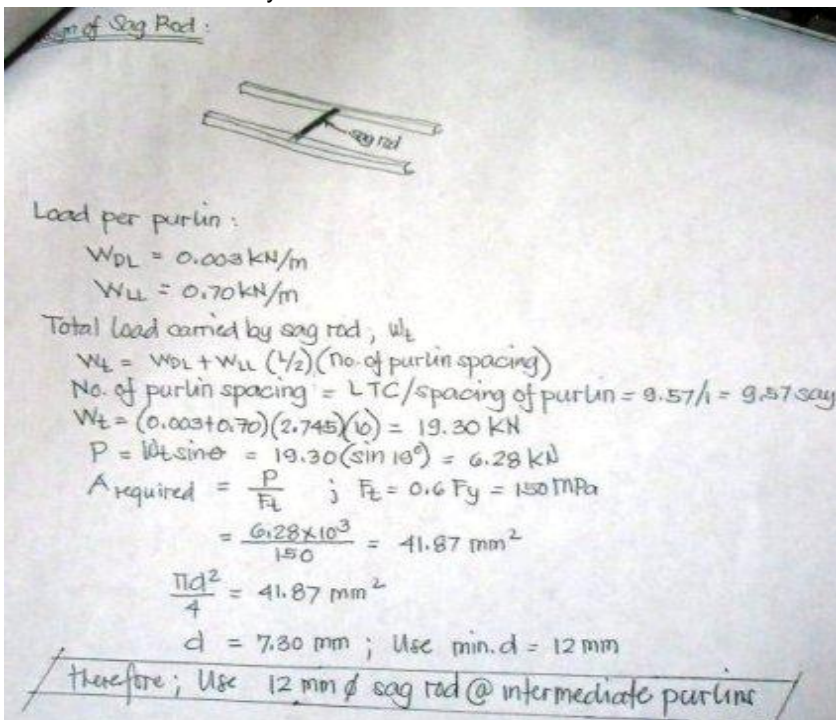 of Sag Rod :
sag rod
Load per purlin :
WDL = 0.003 kN/m
WLL = 0.70 kN/m
Total load carried by sag rod, Wt
Wt = WDL + WLL (L/2)(no. of purlin spacing)
No. of purlin spacing = LTC/spacing of purlin = 9.57/1 = 9.57 say
Wt = (0.003+0.70)(2.745)(10) = 19.30 KN
P = Wt sinθ = 19.30(sin 19°) = 6.28 kN
A required = P/Ft ; Ft = 0.6 Fy = 150 MPa
= 6.28x10³/150 = 41.87 mm²
πd²/4 = 41.87 mm²
d = 7.30 mm ; Use min. d = 12 mm
therefore ; Use 12 mm ø sag rod @ intermediate purlins